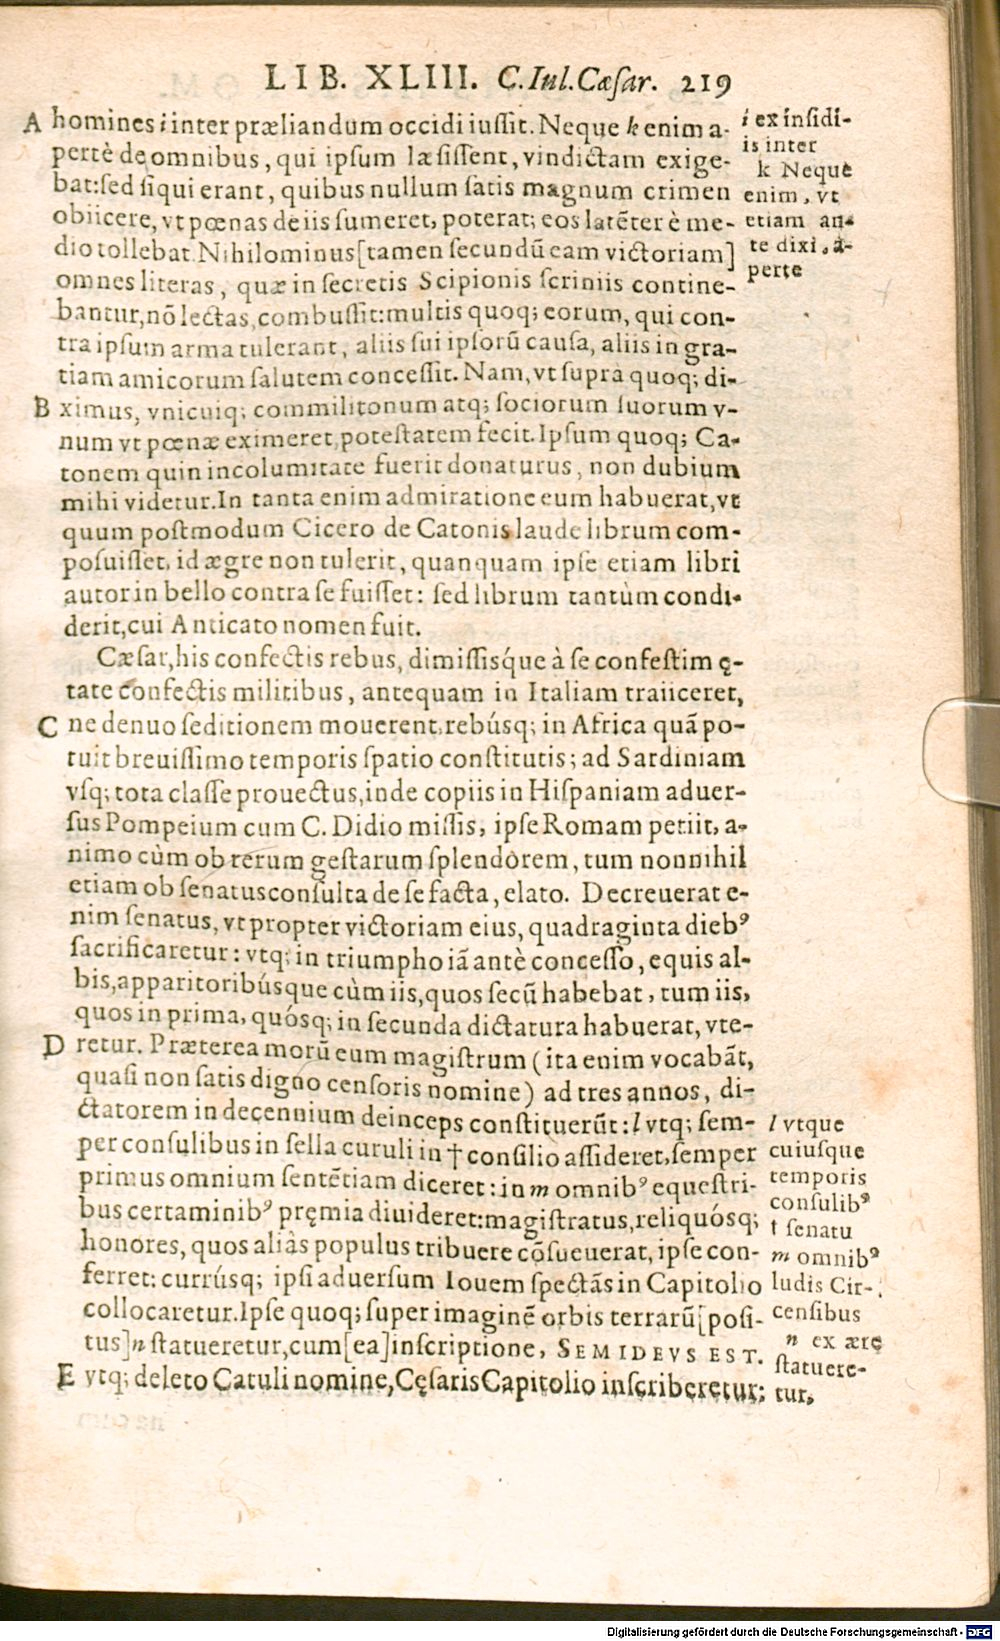 LIB. XLIII. C. Iul. Cæſar. 219
A homines i inter præliandum occidi iuſſit. Neque k enim a-
pertè de omnibus, qui ipſum læſiſſent, vindictam exige-
bat: ſed ſiqui erant, quibus nullum ſatis magnum crimen
obiicere, vt pœnas de iis ſumeret, poterat; eos latẽter è me-
dio tollebat. Nihilominus [tamen ſecundũ eam victoriam]
omnes literas, quæ in ſecretis Scipionis ſcriniis contine-
bantur, nõ lectas, combuſſit: multis quoq; eorum, qui con-
tra ipſum arma tulerant, aliis ſui ipſorũ cauſa, aliis in gra-
tiam amicorum ſalutem conceſſit. Nam, vt ſuprà quoq; di-
B ximus, vnicuiq; commilitonum atq; ſociorum ſuorum v-
num vt pœnæ eximeret, poteſtatem fecit. Ipſum quoq; Ca-
tonem quin incolumitate fuerit donaturus, non dubium
mihi videtur. In tanta enim admiratione eum habuerat, vt
quum poſtmodum Cicero de Catonis laude librum com-
poſuiſſet, id ægre non tulerit, quanquam ipſe etiam libri
autor in bello contra ſe fuiſſet: ſed librum tantùm condi-
derit, cui Anticato nomen fuit.
Cæſar, his confectis rebus, dimiſſisq́ue à ſe confeſtim ę-
tate confectis militibus, antequam in Italiam traiiceret,
C ne denuo ſeditionem mouerent, rebúsq; in Africa quã po-
tuit breuiſſimo temporis ſpatio conſtitutis; ad Sardiniam
vſq; tota claſſe prouectus, inde copiis in Hiſpaniam aduer-
ſus Pompeium cum C. Didio miſſis, ipſe Romam petiit, a-
nimo cùm ob rerum geſtarum ſplendorem, tum nonnihil
etiam ob ſenatusconſulta de ſe facta, elato. Decreuerat e-
nim ſenatus, vt propter victoriam eius, quadraginta diebꝰ
ſacrificaretur: vtq; in triumpho iã antè conceſſo, equis al-
bis, apparitoribúsque cùm iis, quos ſecũ habebat, tum iis,
quos in prima, quósq; in ſecunda dictatura habuerat, vte-
D retur. Præterea morũ eum magiſtrum (ita enim vocabãt,
quaſi non ſatis digno cenſoris nomine) ad tres annos, di-
ctatorem in decennium deinceps conſtituerũt: l vtq; ſem-
per conſulibus in ſella curuli in † conſilio aſſideret, ſemper
primus omnium ſentẽtiam diceret: in m omnibꝰ equeſtri-
bus certaminibꝰ pręmia diuideret: magiſtratus, reliquósq;
honores, quos aliàs populus tribuere cõſueuerat, ipſe con-
ferret: currúsq; ipſi aduerſum Iouem ſpectãs in Capitolio
collocaretur. Ipſe quoq; ſuper imaginẽ orbis terrarũ [poſi-
tus] n ſtatueretur, cum [ea] inſcriptione, SEMIDEVS EST.
E vtq; deleto Catuli nomine, Cęſaris Capitolio inſcriberetur:
i ex inſidi-
is inter
k Neque
enim, vt
etiam an-
te dixi, a-
perte
l vtque
cuiuſque
temporis
conſulibꝰ
† ſenatu
m omnibꝰ
ludis Cir-
cenſibus
n ex ære
ſtatuere-
tur,
Digitalisierung gefördert durch die Deutsche Forschungsgemeinschaft - DFG